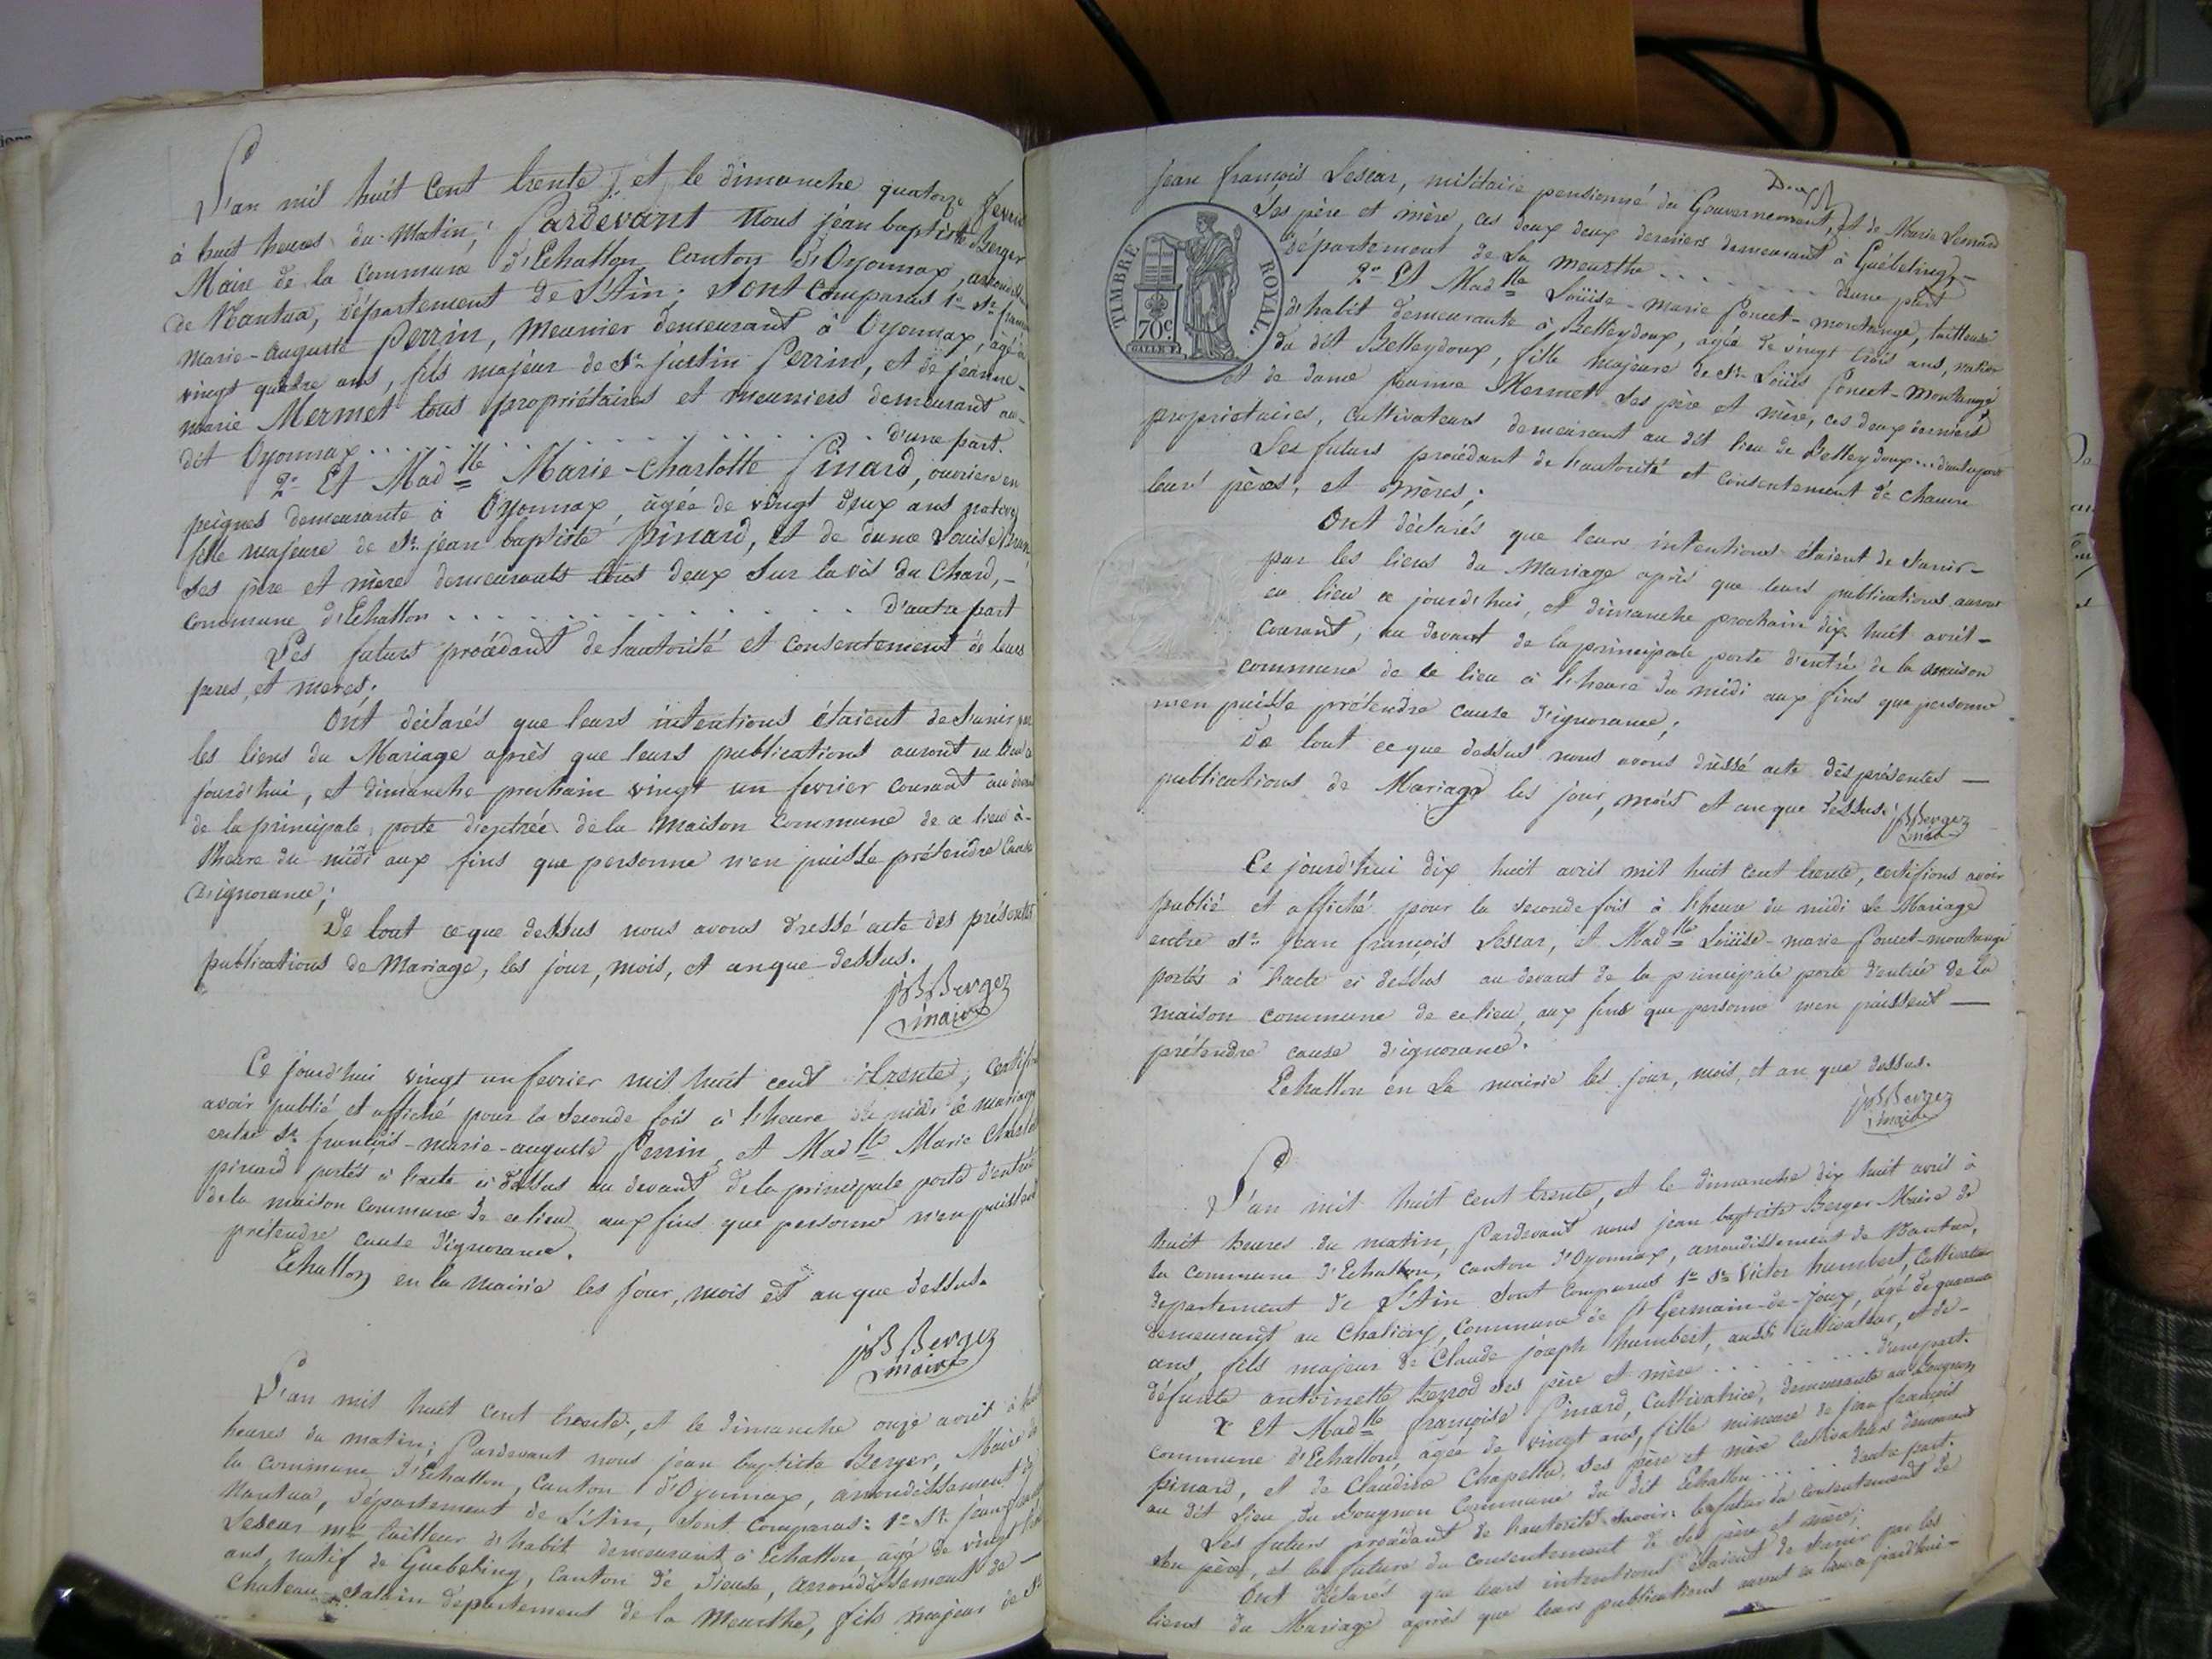 L'an mil huit cent trente, et le dimanche quatorze fevrier
à huit heures du matin; Pardevant nous jean baptiste Berger
Maire de la Commune d'Echallon Canton d'Oyonnax,
de Nantua, département de L'Ain; sont comparus 1º Sr.
marie-auguste Perrin, meunier demeurant à Oyonnax, agé de
vingt quatre ans, fils majeur de Sr. justin Perrin, et de jéanne-
marie Mermet tous propriétaires et meuniers demeurant au-
dit Oyonnax . . . . . . . . . . . . d'une part.
2º Et Madlle Marie-Charlotte Pinard, ouvriere en
peignes demeurante à Oyonnax, agée de vingt deux ans
fille majeure de Sr. jean baptiste pinard, et de dame Louise
ses père et mère demeurants tous deux sur la vis du Chard,-
commune d'Echallon . . . . . . . . . . . . d'autre part
Les futurs procédant de l'autorité et consentement de leurs
peres, et meres;
Ont déclarés que leurs intentions étaient de s'unir par
les liens du Mariage après que leurs publications auront eu lieu ce
jourd'hui, et dimanche prochain vingt un fevrier courant au devant
de la principale porte d'entrée de la Maison Commune de ce lieu à-
l'heure du midi aux fins que personne n'en puisse prétendre Cause
d'ignorance;
De tout ce que dessus nous avons dressé acte des présentes
publications de Mariage, les jour, mois, et an que dessus.
jB Berger
maire
Ce jourd'hui vingt un fevrier mil huit cent trente, certifions
avoir publié et affiché pour la seconde fois à l'heure de midi le mariage
entre Sr. françois-marie-auguste Perrin, et Madlle Marie Charlotte
pinard portés à l'acte ci dessus au devant de la principale porte d'entrée
de la maison commune de ce lieu aux fins que personne n'en puissent
prétendre cause d'ignorance.
Echallon en la Mairie les jour, mois et an que dessus.
jB Berger
maire
L'an mil huit cent trente, et le dimanche onze avril à huit
heures du matin; Pardevant nous jean baptiste Berger, Maire de
la Commune d'Echallon, Canton d'Oyonnax, arrondissement de
Nantua, Département de L'Ain, sont comparus: 1º Sr. jean françois
Lescar me tailleur d'habit demeurant à Echallon agé de vingt
ans natif de Guebeling, Canton de Dieuse, arrondissement de-
Chateau-Salain département de la Meurthe, fils majeur de Sr
Deux
jean françois Lescar, militaire pensionné du Gouvernement, et de Marie Lemard
ses père et mère, ces deux deux derniers demeurant à Guébeling,-
département de La meurthe . . . . . . . . d'une part
2º Et Madlle Loüise-marie Poncet-montange, tailleuse
d'habit demeurante à Belleydoux, agée de vingt trois ans, native
du dit Belleydoux, fille majeure de Sr. Loüis Poncet-Montange
et de dame jeanne Mermet ses père et mère, ces deux derniers
propriétaires, cultivateurs demeurant au dit lieu de Belleydoux... d'autre part
Les futurs procédant de l'autorité et consentement de chacun
leurs pères, et mères;
Ont déclarés que leurs intentions étaient de s'unir-
par les liens du Mariage après que leurs publications auront
eu lieu ce jourd'hui, et dimanche prochain dix huit avril-
courant, au devant de la principale porte d'entrée de la maison
commune de ce lieu à l'heure du midi aux fins que personne
n'en puisse prétendre cause d'ignorance;
De tout ce que dessus nous avons dressé acte des présentes -
publications de Mariage les jour, mois et an que dessus.
jB Berger
maire
Ce jourd'hui dix huit avril mil huit cent trente, certifions avoir
publié et affiché pour la seconde fois à l'heure du midi le Mariage
entre Sr. Jean françois Lescar, et Madlle Loüise-marie Poncet-montange
portés à l'acte ci dessus au devant de la principale porte d'entrée de la
maison commune de ce lieu, aux fins que personne n'en puissent -
prétendre cause d'ignorance.
Echallon en la mairie les jour, mois, et an que dessus.
jB Berger
maire
L'an mil huit cent trente, et le dimanche dix huit avril à
huit heures du matin, Pardevant nous jean baptiste Berger Maire de
la commune d'Echallon, canton d'Oyonnax, arrondissement de Nantua,
département de L'Ain sont comparus 1º Sr. Victor humbert, cultivateur
demeurant au Chatiery, Commune de St Germain-de-Joux, agé de quarante
ans, fils majeur de Claude joseph humbert, aussi cultivateur, et de-
défunte antoinette ses père et mère . . . . . . . d'une part.
2º Et Madlle françoise Pinard, Cultivatrice, demeurante au Bougnon
commune d'Echallon, agée de vingt ans, fille mineure de jean françois
pinard, et de Claudine Chapelle, ses père et mère cultivateurs demeurant
au dit lieu du Bougnon Commune du dit Echallon . . . . . d'autre part.
Les futurs procédant de l'autorité savoir: le futur du consentement de
son père, et la future du consentement de ses père et mère;
Ont déclarés que leurs intentions étaient de s'unir par les
liens du Mariage après que leurs publications auront eu lieu ce jourd'hui-
TIMBRE ROYAL.
70c.